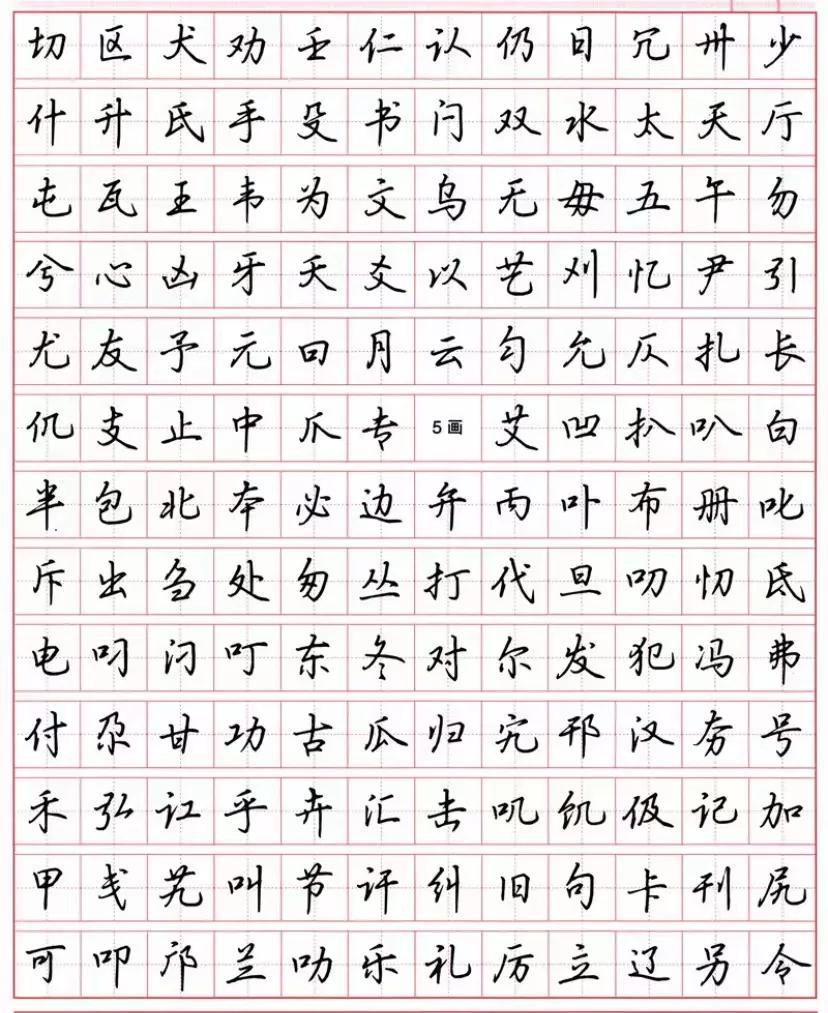 切区犬劝壬仁认仍日冗卅少
什升氏手殳书闩双水太天厅
屯瓦王韦为文乌无毋五午勿
兮心凶牙夭爻以艺刈忆尹引
尤友予元曰月云匀允仄扎长
仉支止中爪专5画艾凹扒叭白
半包北本必边弁丙卟布册叱
斥出刍处匆丛打代旦叨忉氐
电叼汈叮东冬对尔发犯冯弗
付尕甘功古瓜归宄邗汉夯号
禾弘讧乎卉汇击叽饥伋记加
甲戋艽叫节讦纠旧句卡刊尻
可叩邝兰叻乐礼厉立辽另令